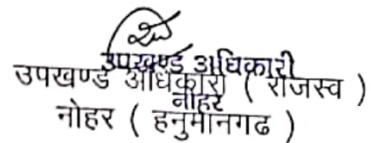 उपखण्ड अधिकारी
उपखण्ड अधिकारी ( राजस्व )
नोहर
नोहर ( हनुमानगढ )